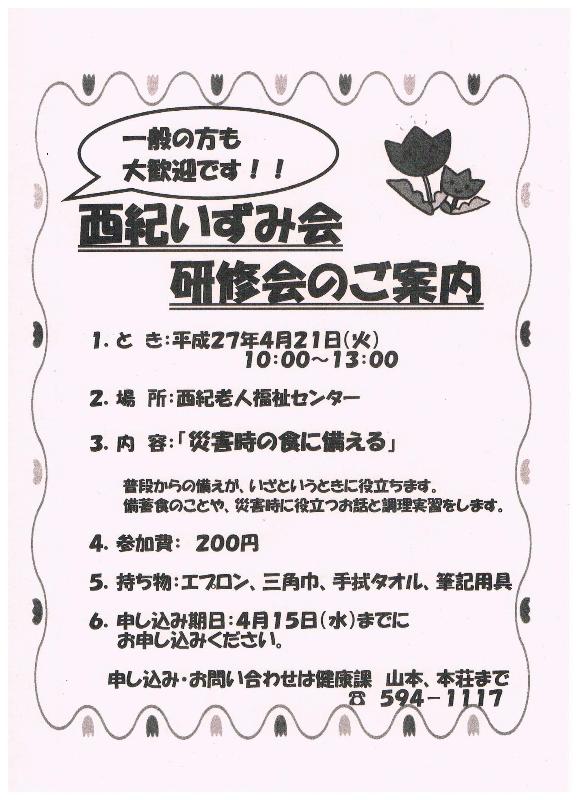 一般の方も
大歓迎です！！
西紀いずみ会
研修会のご案内
1. と き：平成27年4月21日（火）
10：00～13：00
2. 場 所：西紀老人福祉センター
3. 内 容：「災害時の食に備える」
普段からの備えが、いざというときに役立ちます。
備蓄食のことや、災害時に役立つお話と調理実習をします。
4. 参加費： 200円
5. 持ち物：エプロン、三角巾、手拭タオル、筆記用具
6. 申し込み期日：4月15日（水）までに
お申し込みください。
申し込み・お問い合わせは健康課 山本、本荘まで
☎ 594－1117